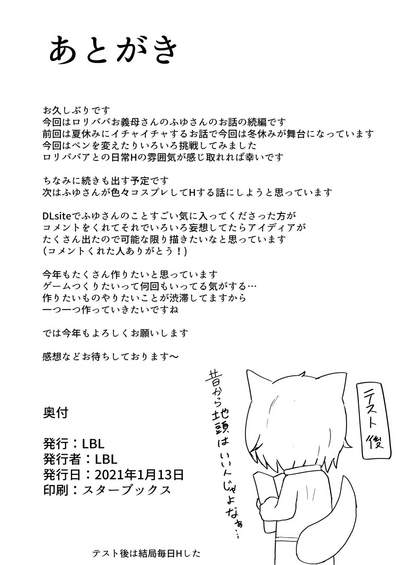 あとがき
お久しぶりです
今回はロリババお義母さんのふゆさんのお話の続編です
前回は夏休みにイチャイチャするお話で今回は冬休みが舞台になっています
今回はペンを変えたりいろいろ挑戦してみました
ロリババアとの日常Hの雰囲気が感じ取れれば幸いです
ちなみに続きも出す予定です
次はふゆさんが色々コスプレしてHする話にしようと思っています
DLsiteでふゆさんのことすごい気に入ってくださった方が
コメントをくれてそれでいろいろ妄想してたらアイディアが
たくさん出たので可能な限り描きたいなと思っています
（コメントくれた人ありがとう！）
今年もたくさん作りたいと思っています
ゲームつくりたいって何回もいってる気がする…
作りたいものやりたいことが渋滞してますから
一つ一つ作っていきたいですね
では今年もよろしくお願いします
感想などお待ちしております～
奥付
発行：LBL
発行者：LBL
発行日：2021年1月13日
印刷：スターブックス
テスト後
昔から地頭はいいんじゃよなぁ…
テスト後は結局毎日Hした